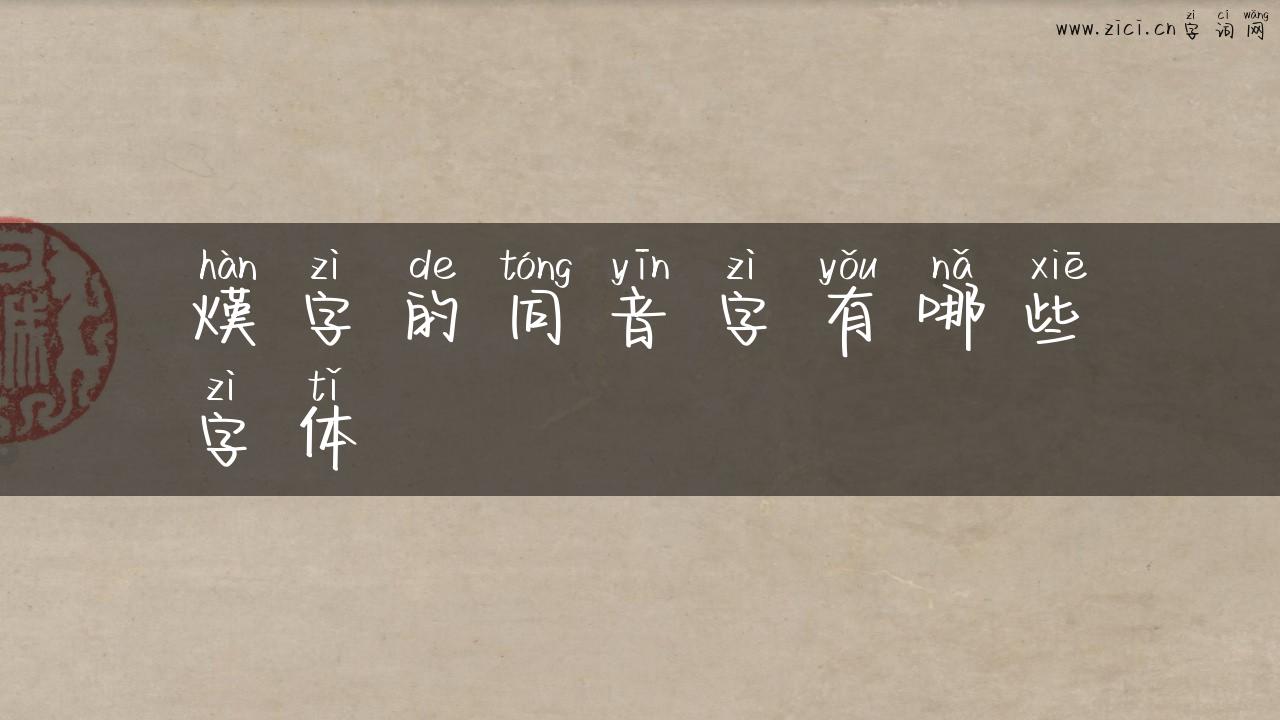 zì cí wǎng
www.zici.cn 字词网
hàn zì de tóng yīn zì yǒu nǎ xiē
熯字的同音字有哪些
zì tǐ
字体